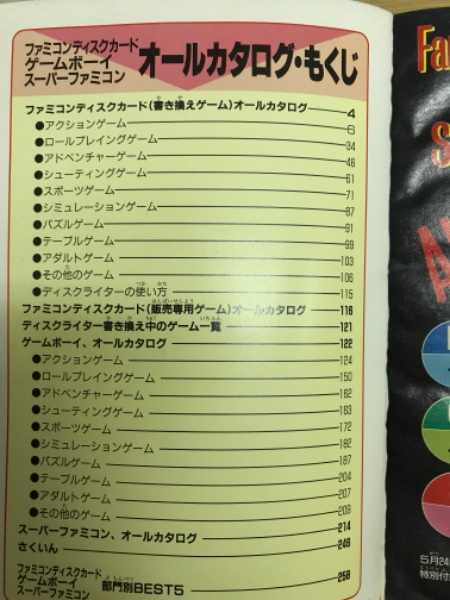 ファミコンディスクカード
ゲームボーイ
スーパーファミコン
オールカタログ・もくじ
ファミコンディスクカード(書き換えゲーム)オールカタログ 4
●アクションゲーム 6
●ロールプレイングゲーム 34
●アドベンチャーゲーム 46
●シューティングゲーム 61
●スポーツゲーム 71
●シミュレーションゲーム 87
●パズルゲーム 91
●テーブルゲーム 99
●アダルトゲーム 103
●その他のゲーム 106
●ディスクライターの使い方 115
ファミコンディスクカード(販売専用ゲーム)オールカタログ 116
ディスクライター書き換え中のゲーム一覧 121
ゲームボーイ、オールカタログ 122
●アクションゲーム 124
●ロールプレイングゲーム 150
●アドベンチャーゲーム 162
●シューティングゲーム 163
●スポーツゲーム 172
●シミュレーションゲーム 182
●パズルゲーム 187
●テーブルゲーム 204
●アダルトゲーム 207
●その他のゲーム 209
スーパーファミコン、オールカタログ 214
さくいん 246
ファミコンディスクカード
ゲームボーイ
スーパーファミコン
部門別BEST5 258
Fa
5月24
特別付